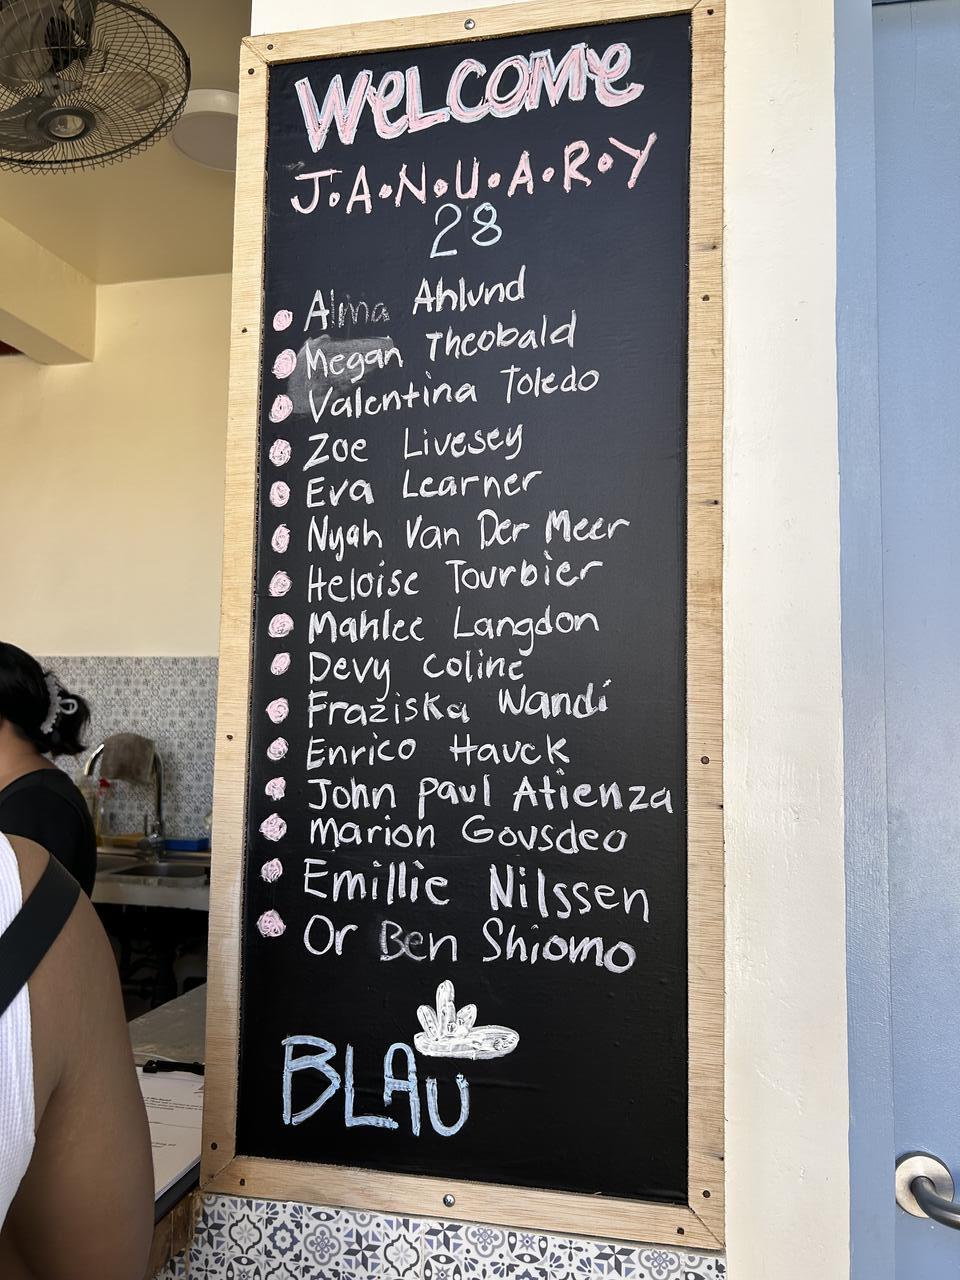 WeLCOMe
J.A.N.U.A.R.Y
28
Alma Ahlund
Megan Theobald
Valentina Toledo
Zoe Livesey
Eva Learner
Nyah Van Der Meer
Heloise Tourbier
Mahlee Langdon
Devy Coline
Fraziska Wandi
Enrico Hauck
John Paul Atienza
Marion Gousdeo
Emillie Nilssen
Or Ben Shiomo
BLAU